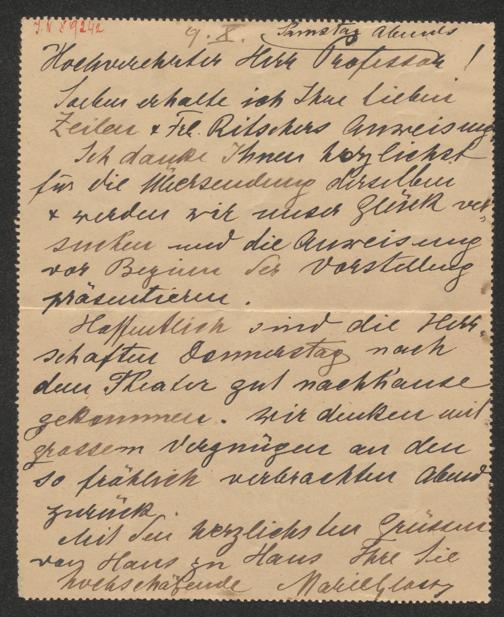 I N 89242
9. X. Samstag Abends
Hochverehrter Herr Professor!
Soeben erhalte ich Ihre lieben
Zeilen & Frl. Ritschers Anweisung
Ich danke Ihnen herzlichst
für die Übersendung derselben
& werden wir unser Glück ver-
suchen und die Anweisung
vor Beginn der Vorstellung
präsentieren.
Hoffentlich sind die Herr-
schaften Donnerstag nach
dem Theater gut nachhause
gekommen. Wir denken mit
grossem Vergnügen an den
so fröhlich verbrachten Abend
zurück.
Mit den herzlichsten Grüssen
von Haus zu Haus Ihre Sie
hochschätzende Marie